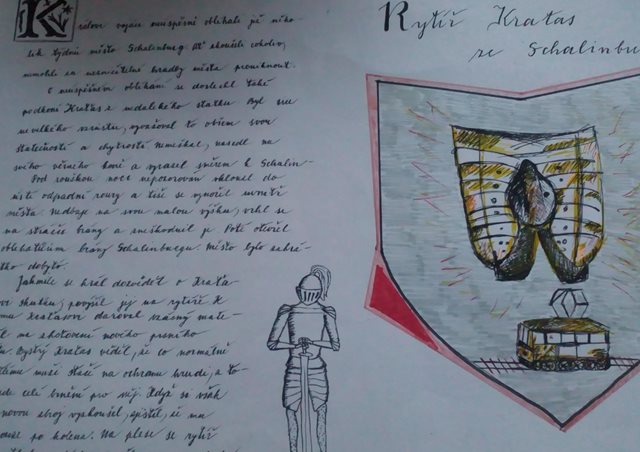 Královi vojáci neúspěšně obléhali již něko-
lik týdnů město Schalinburg. Ať zkoušeli cokoliv,
nemohli za nezničitelné hradby města proniknout.
O neúspěšném obléhání se doslechl také
podkoní Kraťas z nedalekého statku. Byl sic
nevelkého vzrůstu, vyvažoval to všem svou
statečností a chytrostí. Nemeškal, nasedl na
svého věrného koně a vyrazil směrem k Schalin-
Pod rouškou noci nepozorován vklouzl do
ústí odpadní roury a tiše se vynořil uvnitř
města. Nedbaje na svou malou výšku, vrhl se
na strážce brány a zneškodnil je. Poté otevřel
obléhatelům brány Schalinburgu. Město bylo zakrá-
tko dobyto.
Jakmile se král dozvěděl o Kraťa-
skutku, povýšil jej na rytíře. K
mu Kraťasovi daroval vzácný mate-
na zhotovení nového prsního
Bystrý Kraťas věděl, že co normálně
musí stačit na ochranu hrudi, a to-
celé brnění pro něj. Když si však
novou zbroj vyzkoušel, zjistil, že mu
pouze po kolena. Na plese se rytíř
Rytíř Kraťas
ze Schalinbu